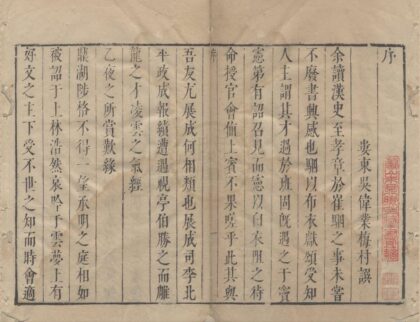 序
婁東吳偉業梅村譔
余讀漢史至孝章於崔駰之事未嘗
不廢書興感也駰以布衣獻頌受知
人主謂其才過於班固旣遇之于竇
憲第有詔召見而憲以白衣阻之待
命授官會値上賓不果嗟乎此其與
吾友尤展成何相類也展成司李北
平政成報績遭遇視亭伯勝之而雕
龍之才凌雲之氣經
乙夜之所賞歎緣
鼎湖陟格不得一望承明之庭相如
被詔于上林浩然哀吟于雲夢上有
好文之主下受不世之知而時會適